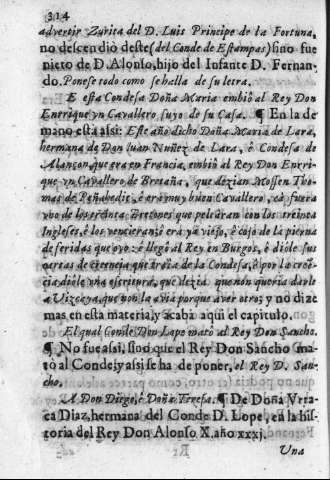 314
advertir Zurita del D. Luis Principe de la Fortuna,
no descendió deste (del Conde de Estampas) sino fue
nieto de D. Alonso, hijo del Infante D. Fernan-
do. Ponese todo como se halla de su letra.
E esta Condesa Doña Maria embiò al Rey Don
Enrrique vn Cavallero suyo de su Casa. ¶ En la de
mano està asi: Este año dicho Doña Maria de Lara,
hermana de Don Iuan Nuñez de Lara, è Condesa de
Alançon, que era en Francia, embiò al Rey Don Enrri-
que vn Cavallero de Bretaña, que dezian Mossen Tho-
mas de è era muy buen Cavallero, cà fuera
vno de los treinta Bretones que pelearan con los treinta
Ingleses, è los vencieran: è era ya viejo, è cojo de la pierna
de feridas que ovo: è llegò al Rey en Burgos, è diòle sus
cartas de creencia que traîa de la Condesa, è por la creē-
cia diòle vna escritura, que dezia que non queria darle
a Vizcaya, que non la avia porque aver otro; y no dize
mas en esta materia, y acaba aqui el capitulo.
El qual Conde Don Lope matò al Rey Don Sancho.
¶ No fue assi, sino que el Rey Don Sancho ma-
tò al Conde; y assi se ha de poner, el Rey D. San-
cho.
A Don Diego, è Doña Teresa. ¶ De Doña Vrra-
ca Diaz, hermana del Conde D. Lope, en la his-
toria del Rey Don Alonso X. año xxxj.
Una